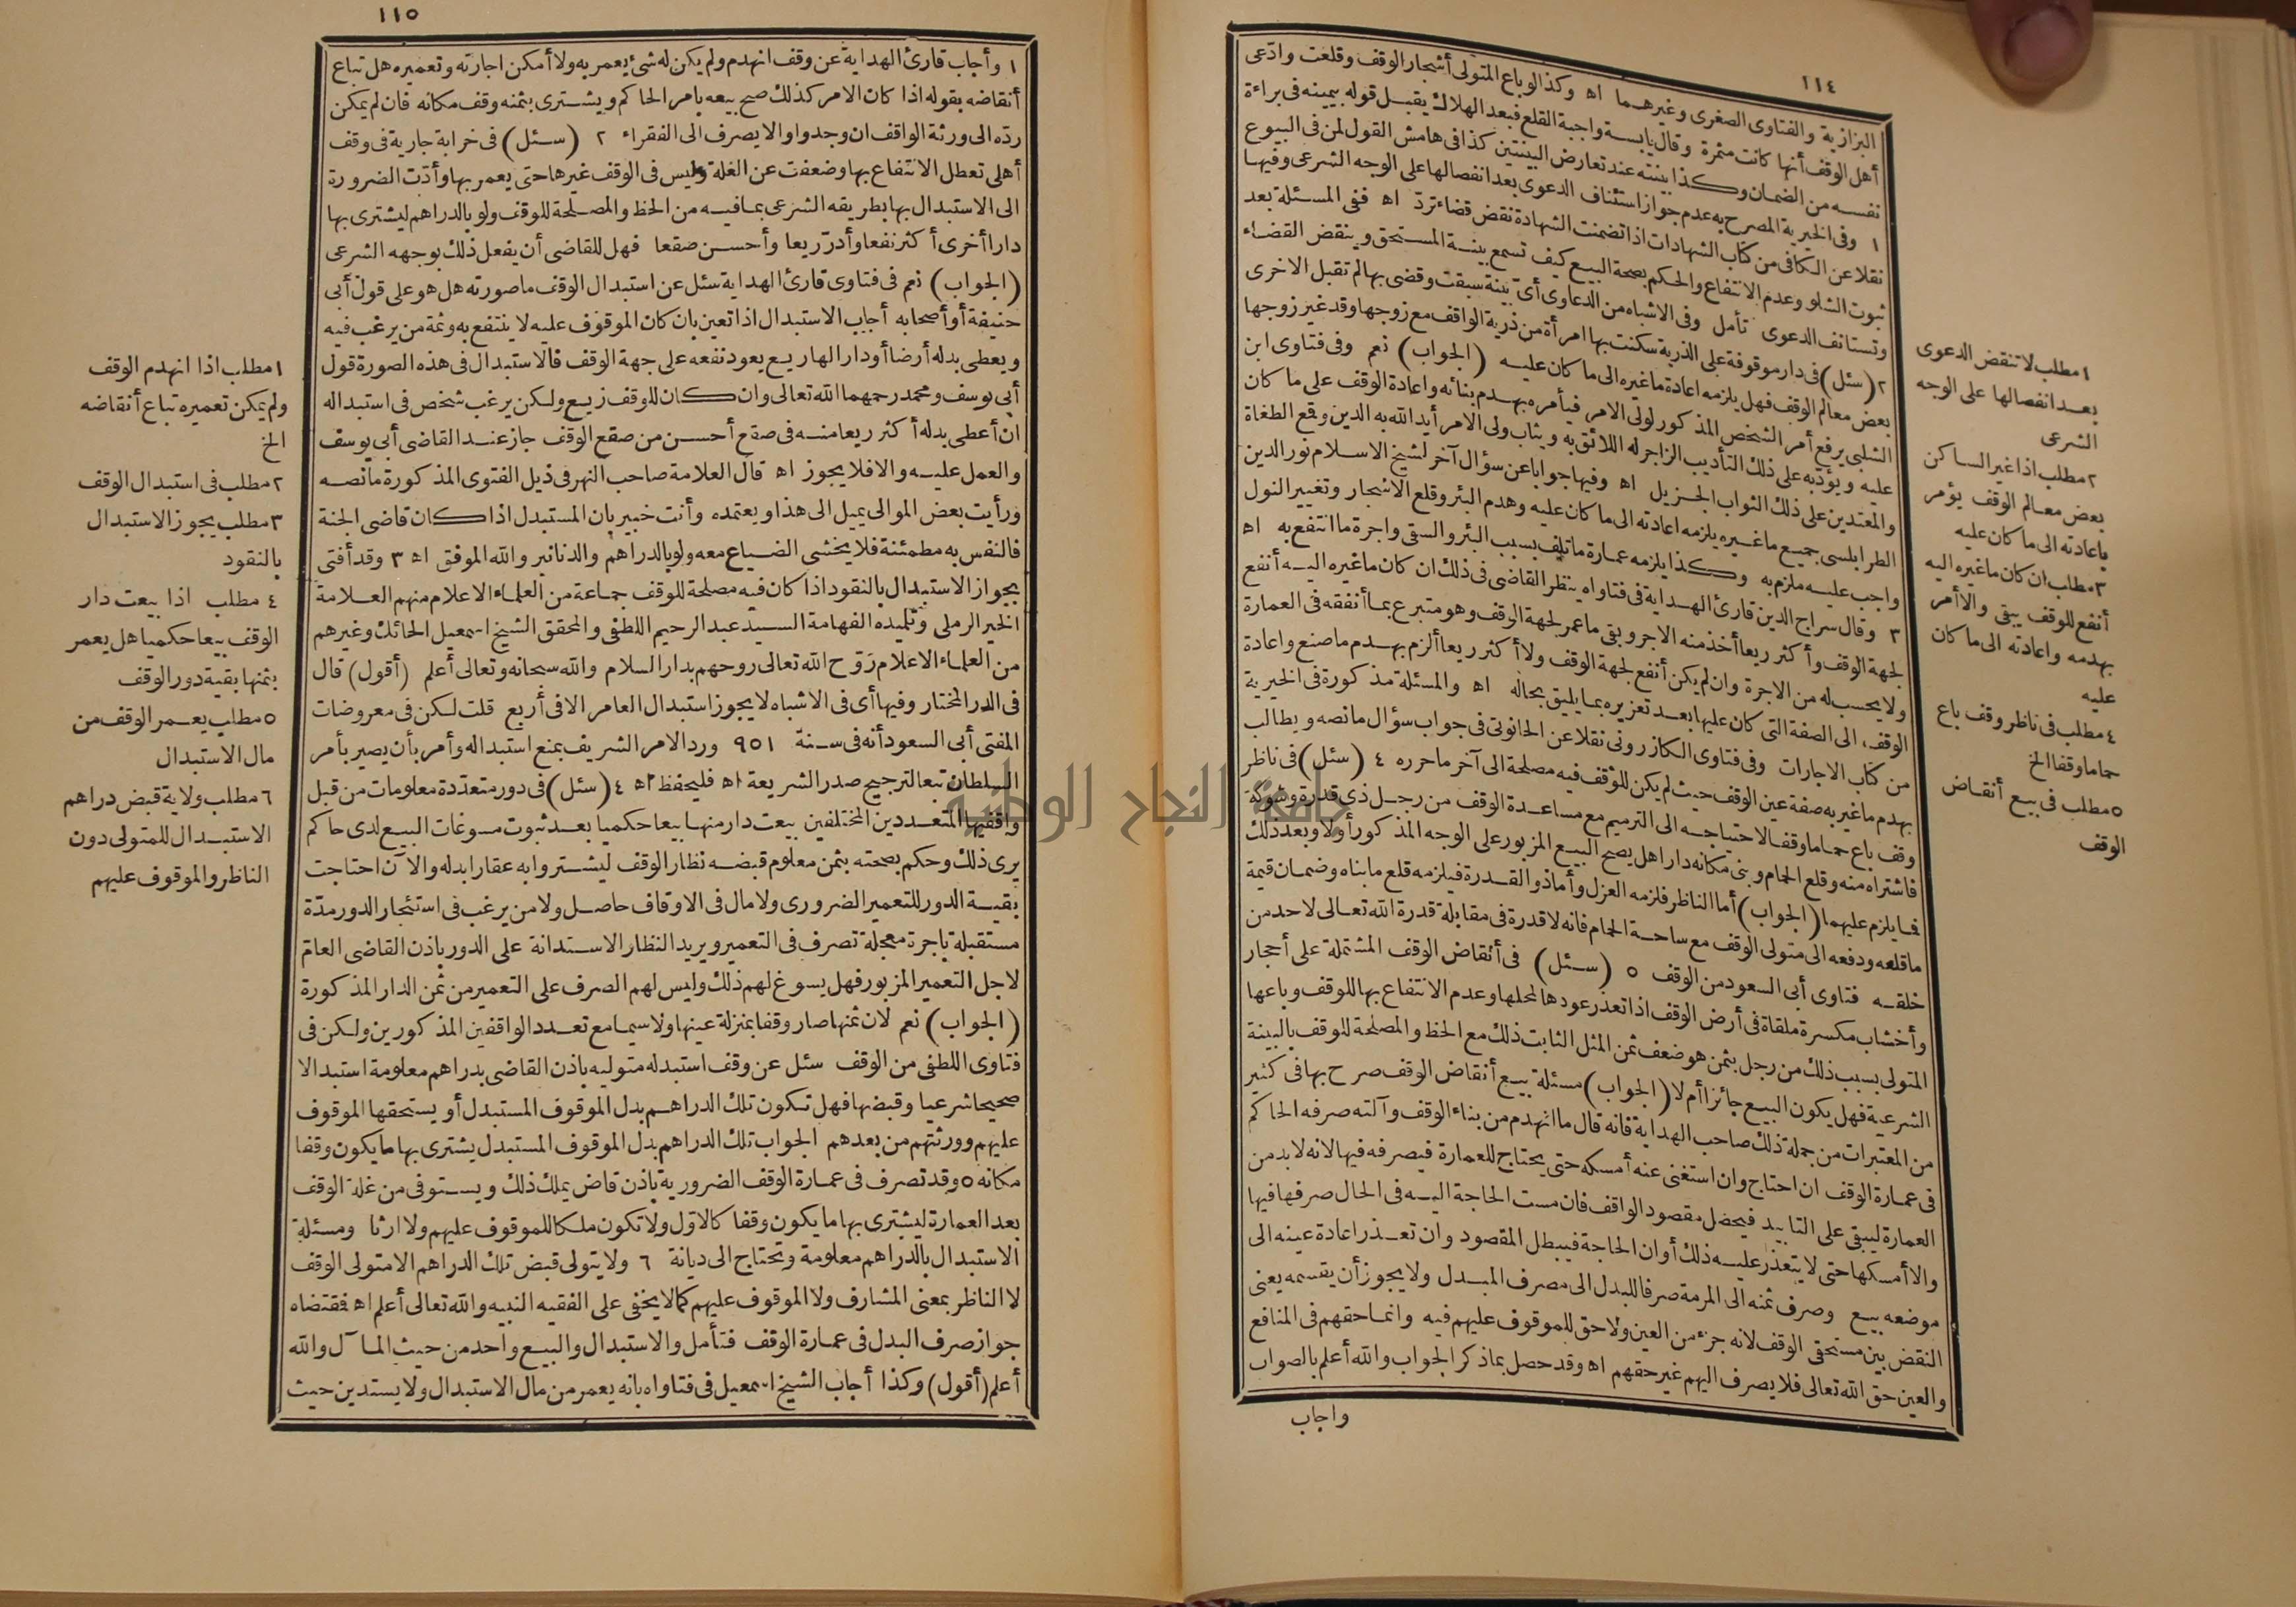 ١١٤
البزازية والفتاوى الصغرى وغيرهما اه وكذا لو باع المتولى أشجار الوقف وقلعت وادّعى
أهل الوقف أنها كانت مثمرة وقال يابسة واجبة القلع فبعد الهلاك يقبل قوله بيمينه فى براءة
نفسه من الضمان وكذا بينته عند تعارض البينتين كذا فى هامش القول لمن فى البيوع
١ وفى الخيرية المصرح به عدم جواز استئناف الدعوى بعد انفصالها على الوجه الشرعى وفيها
نقلا عن الكافى من كتاب الشهادات اذا تضمنت الشهادة نقض قضاء تردّ اه ففى المسئلة بعد
ثبوت الشلو وعدم الانتفاع والحكم بصحة البيع كيف تسمع بينة المستحق وينقض القضاء
وتستانف الدعوى تأمل وفى الاشباه من الدعاوى أىّ بينة سبقت وقضى بها لم تقبل الاخرى
٢ (سئل) فى دار موقوفة على الذرية سكنت بها امرأة من ذرية الواقف مع زوجها وقد غير زوجها
بعض معالم الوقف فهل يلزمه اعادة ما غيره الى ما كان عليه (الجواب) نعم وفى فتاوى ابن
الشلبى يرفع أمر الشخص المذكور لولى الامر فيأمره بهدم بنائه واعادة الوقف على ما كان
عليه ويؤدّبه على ذلك التأديب الزاجر له اللائق به ويثاب ولى الامر أيد الله به الدين وقمع الطغاة
والمعتدين على ذلك الثواب الجزيل اه وفيها جوابا عن سؤال آخر لشيخ الاسلام نور الدين
الطرابلسى جميع ما غيره يلزمه اعادته الى ما كان عليه وهدم البئر وقلع الاشجار وتغيير النول
واجب عليه ملزم به وكذا يلزمه عمارة ما تلف بسبب البئر والسقى واجرة ما انتفع به اه
٣ وقال سراج الدين قارئ الهداية فى فتاواه ينظر القاضى فى ذلك ان كان ما غيره اليه أنفع
لجهة الوقف وأكثر ريعا أخذ منه الاجر وبقى ما عمر لجهة الوقف وهو متبرع بما أنفقه فى العمارة
ولا يحسب له من الاجرة وان لم يكن أنفع لجهة الوقف ولا أكثر ريعا ألزم بهدم ما صنع واعادة
الوقف الى الصفة التى كان عليها بعد تعزيره بما يليق بحاله اه والمسئلة مذكورة فى الخيرية
من كتاب الاجارات وفى فتاوى الكازرونى نقلا عن الحانوتى فى جواب سؤال ما نصه ويطالب
بهدم ما غير به صفة عين الوقف حيث لم يكن للوقف فيه مصلحة الى آخر ما حرره ٤ (سئل) فى ناظر
وقف باع حماما وقفا لاحتياجه الى الترميم مع مساعدة الوقف من رجل ذى قدرة وشوكة
فاشتراه منه وقلع الحمام وبنى مكانه دارا هل يصح البيع المزبور على الوجه المذكور أولا وبعد ذلك
فما يلزم عليهما (الجواب) أما الناظر فلزمه العزل وأما ذو القدرة فيلزمه قلع ما بناه وضمان قيمة
ما قلعه ودفعه الى متولى الوقف مع ساحة الحمام فانه لا قدرة فى مقابلة قدرة الله تعالى لاحد من
خلقه فتاوى أبى السعود من الوقف ٥ (سئل) فى أنقاض الوقف المشتملة على أحجار
وأخشاب مكسرة ملقاة فى أرض الوقف اذا تعذر عودها لمحلها وعدم الانتفاع بها للوقف وباعها
المتولى بسبب ذلك من رجل بثمن هو ضعف ثمن المثل الثابت ذلك مع الحظ والمصلحة للوقف بالبينة
الشرعية فهل يكون البيع جائزا أم لا (الجواب) مسئلة بيع أنقاض الوقف صرح بها فى كثير
من المعتبرات من جملة ذلك صاحب الهداية فانه قال ما انهدم من بناء الوقف وآلته صرفه الحاكم
فى عمارة الوقف ان احتاج وان استغنى عنه أمسكه حتى يحتاج للعمارة فيصرفه فيها لانه لا بد من
العمارة ليبقى على التابيد فيحصل مقصود الواقف فان مست الحاجة اليه فى الحال صرفها فيها
والا أمسكها حتى لا يتعذر عليه ذلك أوان الحاجة فيبطل المقصود وان تعذر اعادة عينه الى
موضعه بيع وصرف ثمنه الى المرمة صرفا للبدل الى مصرف المبدل ولا يجوز أن يقسمه يعنى
النقض بين مستحقى الوقف لانه جزء من العين ولا حق للموقوف عليهم فيه وانما حقهم فى المنافع
والعين حق الله تعالى فلا يصرف اليهم غير حقهم اه وقد حصل بما ذكر الجواب والله أعلم بالصواب
واجاب
١ مطلب لا تنقض الدعوى
بعد انفصالها على الوجه
الشرعى
٢ مطلب اذا غير الساكن
بعض معالم الوقف يؤمر
باعادته الى ما كان عليه
٣ مطلب ان كان ما غيره اليه
أنفع للوقف يبقى والا أمر
بهدمه واعادته الى ما كان
عليه
٤ مطلب فى ناظر وقف باع
حماما وقفا الخ
٥ مطلب فى بيع أنقاض
الوقف
١١٥
١ وأجاب قارئ الهداية عن وقف انهدم ولم يكن له شئ يعمر به ولا أمكن اجارته وتعميره هل تباع
أنقاضه بقوله اذا كان الامر كذلك صح بيعه بامر الحاكم ويشترى بثمنه وقف مكانه فان لم يمكن
ردّه الى ورثة الواقف ان وجدوا والا يصرف الى الفقراء ٢ (سئل) فى خرابة جارية فى وقف
أهلى تعطل الانتفاع بها وضعفت عن الغلة وليس فى الوقف غيرها حتى يعمر بها وأدّت الضرورة
الى الاستبدال بها بطريقه الشرعى بما فيه من الحظ والمصلحة للوقف ولو بالدراهم ليشترى بها
دارا أخرى أكثر نفعا وأدرّ ريعا وأحسن صقعا فهل للقاضى أن يفعل ذلك بوجهه الشرعى
(الجواب) نعم فى فتاوى قارئ الهداية سئل عن استبدال الوقف ما صورته هل هو على قول أبى
حنيفة أو أصحابه أجاب الاستبدال اذا تعين بان كان الموقوف عليه لا ينتفع به وثمة من يرغب فيه
ويعطى بدله أرضا أو دارا لها ريع يعود نفعه على جهة الوقف فالاستبدال فى هذه الصورة قول
أبى يوسف ومحمد رحمهما الله تعالى وان كان للوقف ريع ولكن يرغب شخص فى استبداله
ان أعطى بدله أكثر ريعا منه فى صقع أحسن من صقع الوقف جاز عند القاضى أبى يوسف
والعمل عليه والا فلا يجوز اه قال العلامة صاحب النهر فى ذيل الفتوى المذكورة ما نصه
ورأيت بعض الموالى يميل الى هذا ويعتمده وأنت خبير بان المستبدل اذا كان قاضى الجنة
فالنفس به مطمئنة فلا يخشى الضياع معه ولو بالدراهم والدنانير والله الموفق اه ٣ وقد أفتى
بجواز الاستبدال بالنقود اذا كان فيه مصلحة للوقف جماعة من العلماء الاعلام منهم العلامة
الخير الرملى وتلميذه الفهامة السيد عبد الرحيم اللطفى والمحقق الشيخ اسمعيل الحائك وغيرهم
من العلماء الاعلام رَوّح الله تعالى روحهم بدار السلام والله سبحانه وتعالى أعلم (أقول) قال
فى الدر المختار وفيها أى فى الاشباه لا يجوز استبدال العامر الا فى أربع قلت لكن فى معروضات
المفتى أبى السعود أنه فى سنة ٩٥١ ورد الامر الشريف بمنع استبداله وأمر بأن يصير بأمر
السلطان تبعا لترجيح صدر الشريعة اه فليحفظ اه ٤ (سئل) فى دور متعدّدة معلومات من قبل
واقفيها المتعددين المختلفين بيعت دار منها بيعا حكميا بعد ثبوت مسوغات البيع لدى حاكم
يرى ذلك وحكم بصحته بثمن معلوم قبضه نظار الوقف ليشتروا به عقارا بدله والآن احتاجت
بقية الدور للتعمير الضرورى ولا مال فى الاوقاف حاصل ولا من يرغب فى استئجار الدور مدّة
مستقبلة باجرة معجلة تصرف فى التعمير ويريد النظار الاستدانة على الدور باذن القاضى العام
لاجل التعمير المزبور فهل يسوغ لهم ذلك وليس لهم الصرف على التعمير من ثمن الدار المذكورة
(الجواب) نعم لان ثمنها صار وقفا بمنزلة عينها ولا سيما مع تعدد الواقفين المذكورين ولكن فى
فتاوى اللطفى من الوقف سئل عن وقف استبدله متوليه باذن القاضى بدراهم معلومة استبدالا
صحيحا شرعيا وقبضها فهل تكون تلك الدراهم بدل الموقوف المستبدل أو يستحقها الموقوف
عليهم وورثتهم من بعدهم الجواب تلك الدراهم بدل الموقوف المستبدل يشترى بها ما يكون وقفا
مكانه ٥ وقد تصرف فى عمارة الوقف الضرورية باذن قاض يملك ذلك ويستوفى من غلة الوقف
بعد العمارة ليشترى بها ما يكون وقفا كالاوّل ولا تكون ملكا للموقوف عليهم ولا ارثا ومسئلة
الاستبدال بالدراهم معلومة وتحتاج الى ديانة ٦ ولا يتولى قبض تلك الدراهم الا متولى الوقف
لا الناظر بمعنى المشارف ولا الموقوف عليهم كما لا يخفى على الفقيه النبيه والله تعالى أعلم اه فمقتضاه
جواز صرف البدل فى عمارة الوقف فتأمل والاستبدال والبيع واحد من حيث المآل والله
أعلم (أقول) وكذا أجاب الشيخ اسمعيل فى فتاواه بانه يعمر من مال الاستبدال ولا يستدين حيث
١ مطلب اذا انهدم الوقف
ولم يمكن تعميره تباع أنقاضه
الخ
٢ مطلب فى استبدال الوقف
٣ مطلب يجوز الاستبدال
بالنقود
٤ مطلب اذا بيعت دار
الوقف بيعا حكميا هل يعمر
بثمنها بقية دور الوقف
٥ مطلب يعمر الوقف من
مال الاستبدال
٦ مطلب ولاية قبض دراهم
الاستبدال للمتولى دون
الناظر والموقوف عليهم
جامعة النجاح الوطنية